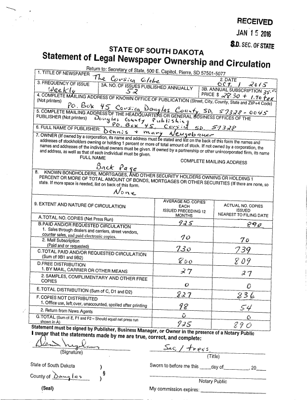 RECEIVED
JAN 15 2016
S.D. SEC. OF STATE
STATE OF SOUTH DAKOTA
Statement of Legal Newspaper Ownership and Circulation
Return to: Secretary of State, 500 E. Capitol, Pierre, SD 57501-5077
1. TITLE OF NEWSPAPER The Corsica Globe
2. DATE
Oct 2015
3. FREQUENCY OF ISSUE
Weekly
3A. NO. OF ISSUES PUBLISHED ANNUALLY
52
3B. ANNUAL SUBSCRIPTION
PRICE $
4. COMPLETE MAILING ADDRESS OF KNOWN OFFICE OF PUBLICATION (Street, City, County, State and ZIP+4 Code)
(Not printers)
PO. Box 45 Corsica Douglas County SD 57328-0045
5. COMPLETE MAILING ADDRESS OF THE HEADQUARTERS OR GENERAL BUSINESS OFFICES OF THE
PUBLISHER (Not printer) Douglas County Publishing
PO. Box 45, Corsica SD 57328
6. FULL NAME OF PUBLISHER:
Dennis + Mary
7. OWNER (If owned by a corporation, its name and address must be stated and also
addresses of stockholders owning or holding 1 percent or more of total amount of stock. If not owned by a corporation, the
names and addresses of the individual owners must be given. If owned by a partnership or other unincorporated firm, its name
and address, as well as that of each individual must be given).
FULL NAME
COMPLETE MAILING ADDRESS
Back Page
8. KNOWN BONDHOLDERS, MORTGAGEES, AND OTHER SECURITY HOLDERS OWNING OR HOLDING 1
PERCENT OR MORE OF TOTAL AMOUNT OF BONDS, MORTGAGES OR OTHER SECURITIES (If there are none, so
state. If more space is needed, list on back of this form.
None
9. EXTENT AND NATURE OF CIRCULATION
AVERAGE NO. COPIES
EACH
ISSUED PRECEDING 12
MONTHS
ACTUAL NO. COPIES
ISSUED
NEAREST TO FILING DATE
A. TOTAL NO. COPIES (Net Press Run)
925
890
B. PAID AND/OR REQUESTED CIRCULATION
1. Sales through dealers and carriers, street vendors,
counter sales, and paid electronic copies.
70
70
2. Mail Subscription
(Paid and or requested)
730
739
C. TOTAL PAID AND/OR REQUESTED CIRCULATION
(Sum of 9B1 and 9B2)
800
809
D. FREE DISTRIBUTION
1. BY MAIL, CARRIER OR OTHER MEANS
27
27
2. SAMPLES, COMPLIMENTARY AND OTHER FREE
COPIES
0
0
E. TOTAL DISTRIBUTION (Sum of C, D1 and D2)
827
836
F. COPIES NOT DISTRIBUTED
1. Office use, left over, unaccounted, spoiled after printing
98
54
2. Return from News Agents
0
0
G. TOTAL (Sum of E, F1 and F2 - Should equal net press run
shown in A)
925
890
Statement must be signed by Publisher, Business Manager, or Owner in the presence of a Notary Public
I swear that the statements made by me are true, correct, and complete:
Sec / treas
(Signature)
(Title)
State of South Dakota )
Sworn to before me this ___ day of ___ 20__
County of Douglas )
Notary Public
(Seal)
My commission expires: